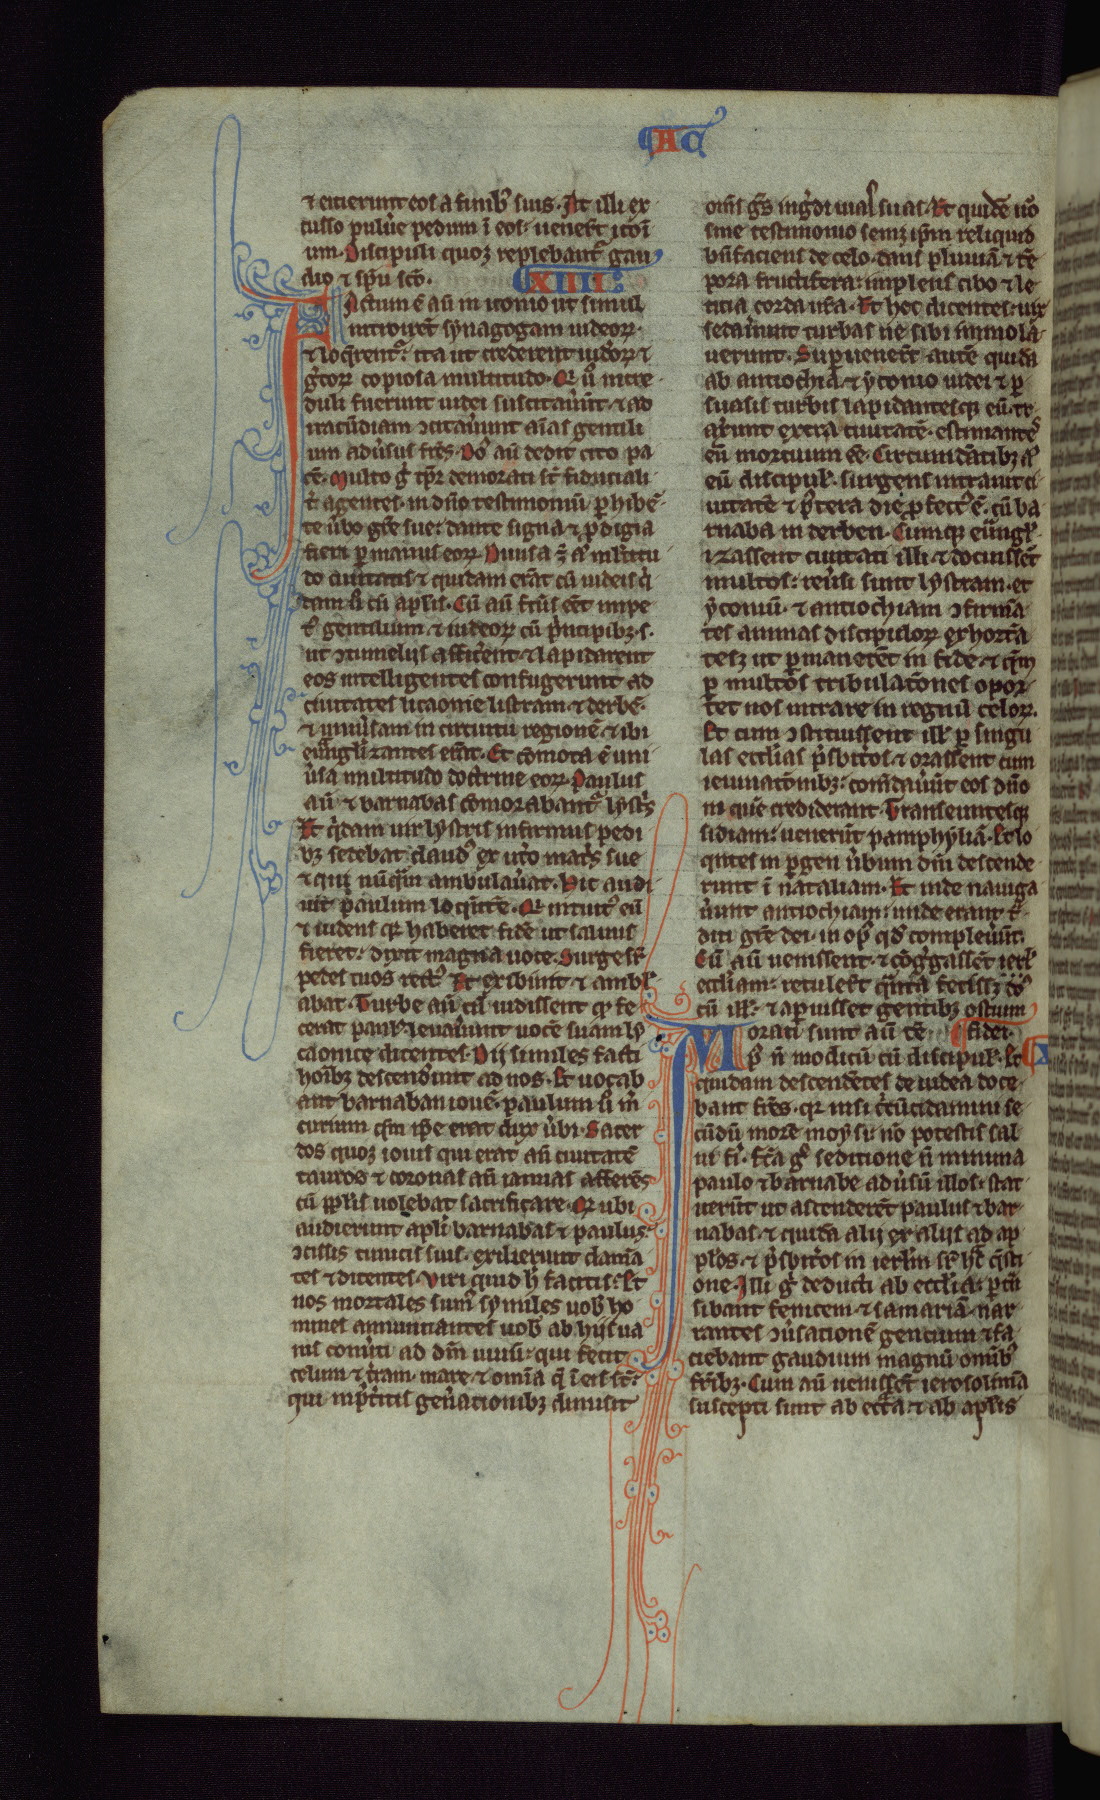 AC
⁊ eiecerunt eos a finibꝰ suis. At illi ex
cusso puluͤe pedum ī eos: ueneſt̄ iconi
um. Discipuli quoꝫ replebant᷑ gau
dio ⁊ spū scō.
XIIII.
Factum ē aū in iconio ut simul
introirēt synagogam iudeoꝝ
⁊ loq̄rent᷑: ita ut crederent iudeoꝝ ⁊
g̊coꝝ copiosa multitudo. Qi ū incre
duli fuerunt iudei suscitauūt ⁊ ad
iracūdiam ↄcitauunt aīas gentili
um aduͥsus frēs. Dō aū dedit cito pa
cē. Multo g̊ tp̄r demorati st̄ fiduciali
ṫ agentes. in dn̄o testimoniū perhibē
te uͥbo grē sue: dante signa ⁊ prodigia
fieri per manus eoꝝ. Diuisa ē aū multitu
do ciuitatis ⁊ quidam erāt cū iudeis q̇
dam ū cū apl̄is. Cū aū fcūs eēt impe
tꝰ gentilium ⁊ iudeoꝝ cū pͥncipibꝫ s.
ut ↄtumelijs afficerent ⁊ lapidarent
eos intelligentes confugerunt ad
ciuitates licaonie listram ⁊ derbē.
⁊ uniuͥsam in circuitu regionē ⁊ ibi
euāgl̄izantes erāt. Et cōmota ē uni
uͥsa multitudo doctrine eoꝝ. Paulus
aū ⁊ barnabas cōmorabant᷑ lystͥs
Et q̇dam uir lystris infirmus pedi
bꝫ sedebat claudꝰ ex utͦo matͥs sue
⁊ qui nūqͣm ambulauͥat. Hic audi
uit paulum loquētē. Qi intuitꝰ eū
⁊ uidens qꝛ haberet fidē ut saluus
fieret: dixit magna uoce. Surge sr̄
pedes tuos rectꝰ Et exiliuit ⁊ ambl̄
abat. Turbe aū cū uidissent qd fe
cerat paulꝰ leuauͥunt uocē suam ly
caonice dicentes. Dii similes facti
hoībꝫ descendͥunt ad nos. Et uocab
ant barnaban iouē. paulum ū m̄
curium qm̄ ip̄e erat dux uͥbi. Sacer
dos quoꝫ iouis qui erat an̄ ciuitatē
tauros ⁊ coronas an̄ ianuas afferēs
cū pp̄lis uolebat sacrificare. Qi ubi
audierunt apl̄i barnabas ⁊ paulus:
ↄcissis tunicis suis. exilierunt clamā
tes ⁊ dicentes. Viri quid h̄ facitis: Et
nos mortales sumꝰ symiles uob̄ ho
mines annuntiantes uob̄ ab hijs ua
nis conuͥti ad dm̄ uiuū: qui fecit
celum ⁊ tͥram. mare ⁊ omīa q̄ ī eis st̄:
qui in pͥt̄itis genͥationibꝫ dimisit
om̄s gn̄s ingͥdi uias suas. Et quidē nō
sine testimonio semꝫ ip̄m reliquid
bn̄faciens de celo. dans pluuiā ⁊ tē
pora fructifera: implens cibo ⁊ le
titia corda nr̄a. Et hec dicentes: uix
sedauͥunt turbas ne sibi immola
uerunt. Superuenert̄ autē quidā
ab antiochia ⁊ yconio iudei ⁊ per
suasis turbis lapidantesqꝫ eū: tr
axͥunt extra ciuitatē. estimantes
eū mortuum eē. Circumdātibꝫ aū
eū discipulꝭ. surgens intrauit ci
uitatē ⁊ pͦtera die profectꝰ ē. cū ba
rnaba in derben. Cumqꝫ euāgl̄
izassent ciuitati illi ⁊ docuissēt
multos: reuͥsi sunt lystram. et
yconiū. ⁊ antiochiam ↄfirmā
tes animas discipuloꝝ exhortā
tesꝫ ut permanerēt in fide ⁊ qm̄
per multos tribulatōnes opor
tet nos intrare in regnū celoꝝ.
Et cum ↄstituissent illꝭ per singu
las eccl̄ias pͥsbitͥos ⁊ orassent cum
ieiunatōnibꝫ: com̄dauͥūt eos dn̄o
in quē crediderant. Transeuntesqꝫ
sidiam: uenerūt pamphyliā. Et lo
qntes in pergen uͥbum dn̄i descende
runt ī nataliam. Et inde nauiga
uͥunt antiochiam: unde erant tͣ
diti grē dei. in opꝰ qd̄ compleuͥūt.
Cū aū uenissent. ⁊ cōgͥgassēt
eccl̄iam: retulert̄ qͣnta fecisset dꝰ
cū illꝭ. ⁊ aperuisset gentibꝫ ostium
fidei.
Morati sunt aū tē
pꝰ n̄ modicū cū discipulꝭ. Et
quidam descendētes de iudea doce
bant frēs. qꝛ nisi cͥcūcidamini se
cūdū morē moysi: nō potestis sal
ui fiͥ. fcā gͦ seditione n̄ minima
paulo ⁊ barnabe aduͥsū illos. stat
uerūt ut ascenderēt paulus ⁊ bar
nabas. ⁊ quidā alij ex alijs ad ap
plos. ⁊ pͥsbitͥos in ierl̄m sꝑ hͨ q̄sti
one. Illi gͦ deducti ab eccl̄ia: per tn̄
sibant fenicem ⁊ samariā. nar
rantes ↄuͥsationē gentium ⁊ fa
ciebant gaudium magnū omībꝰ
frībꝫ. Cum aū uenissēt ierosolimā
suscepti sunt ab eccl̄ia ⁊ ab apl̄is